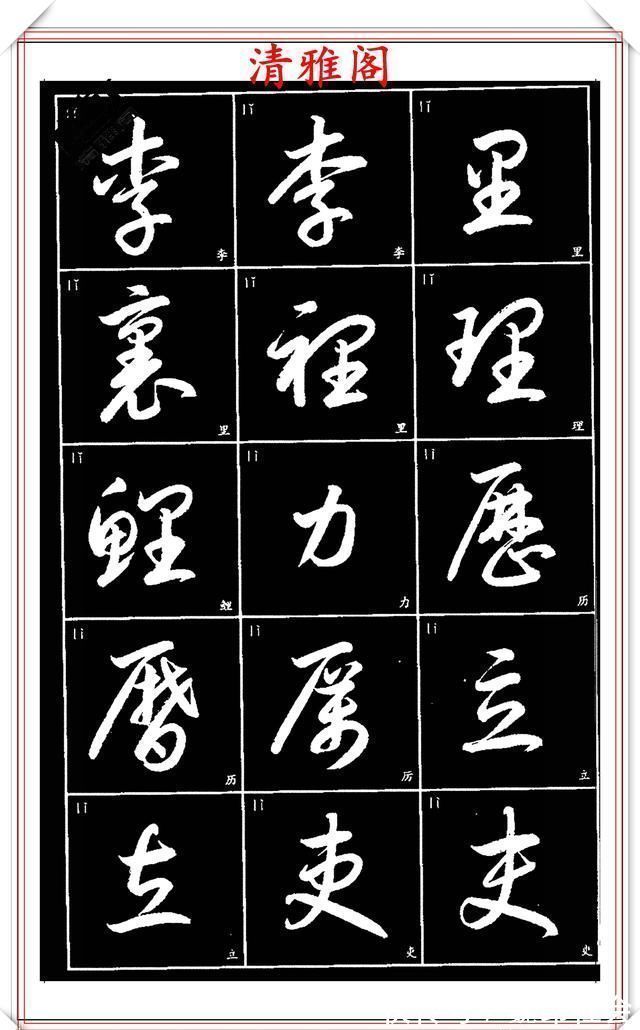 清雅阁
李 李 里
李 李 里
裏 裡 理
里 里 理
鯉 力 歷
鲤 力 历
曆 厲 立
历 厉 立
立 吏 吏
立 吏 吏